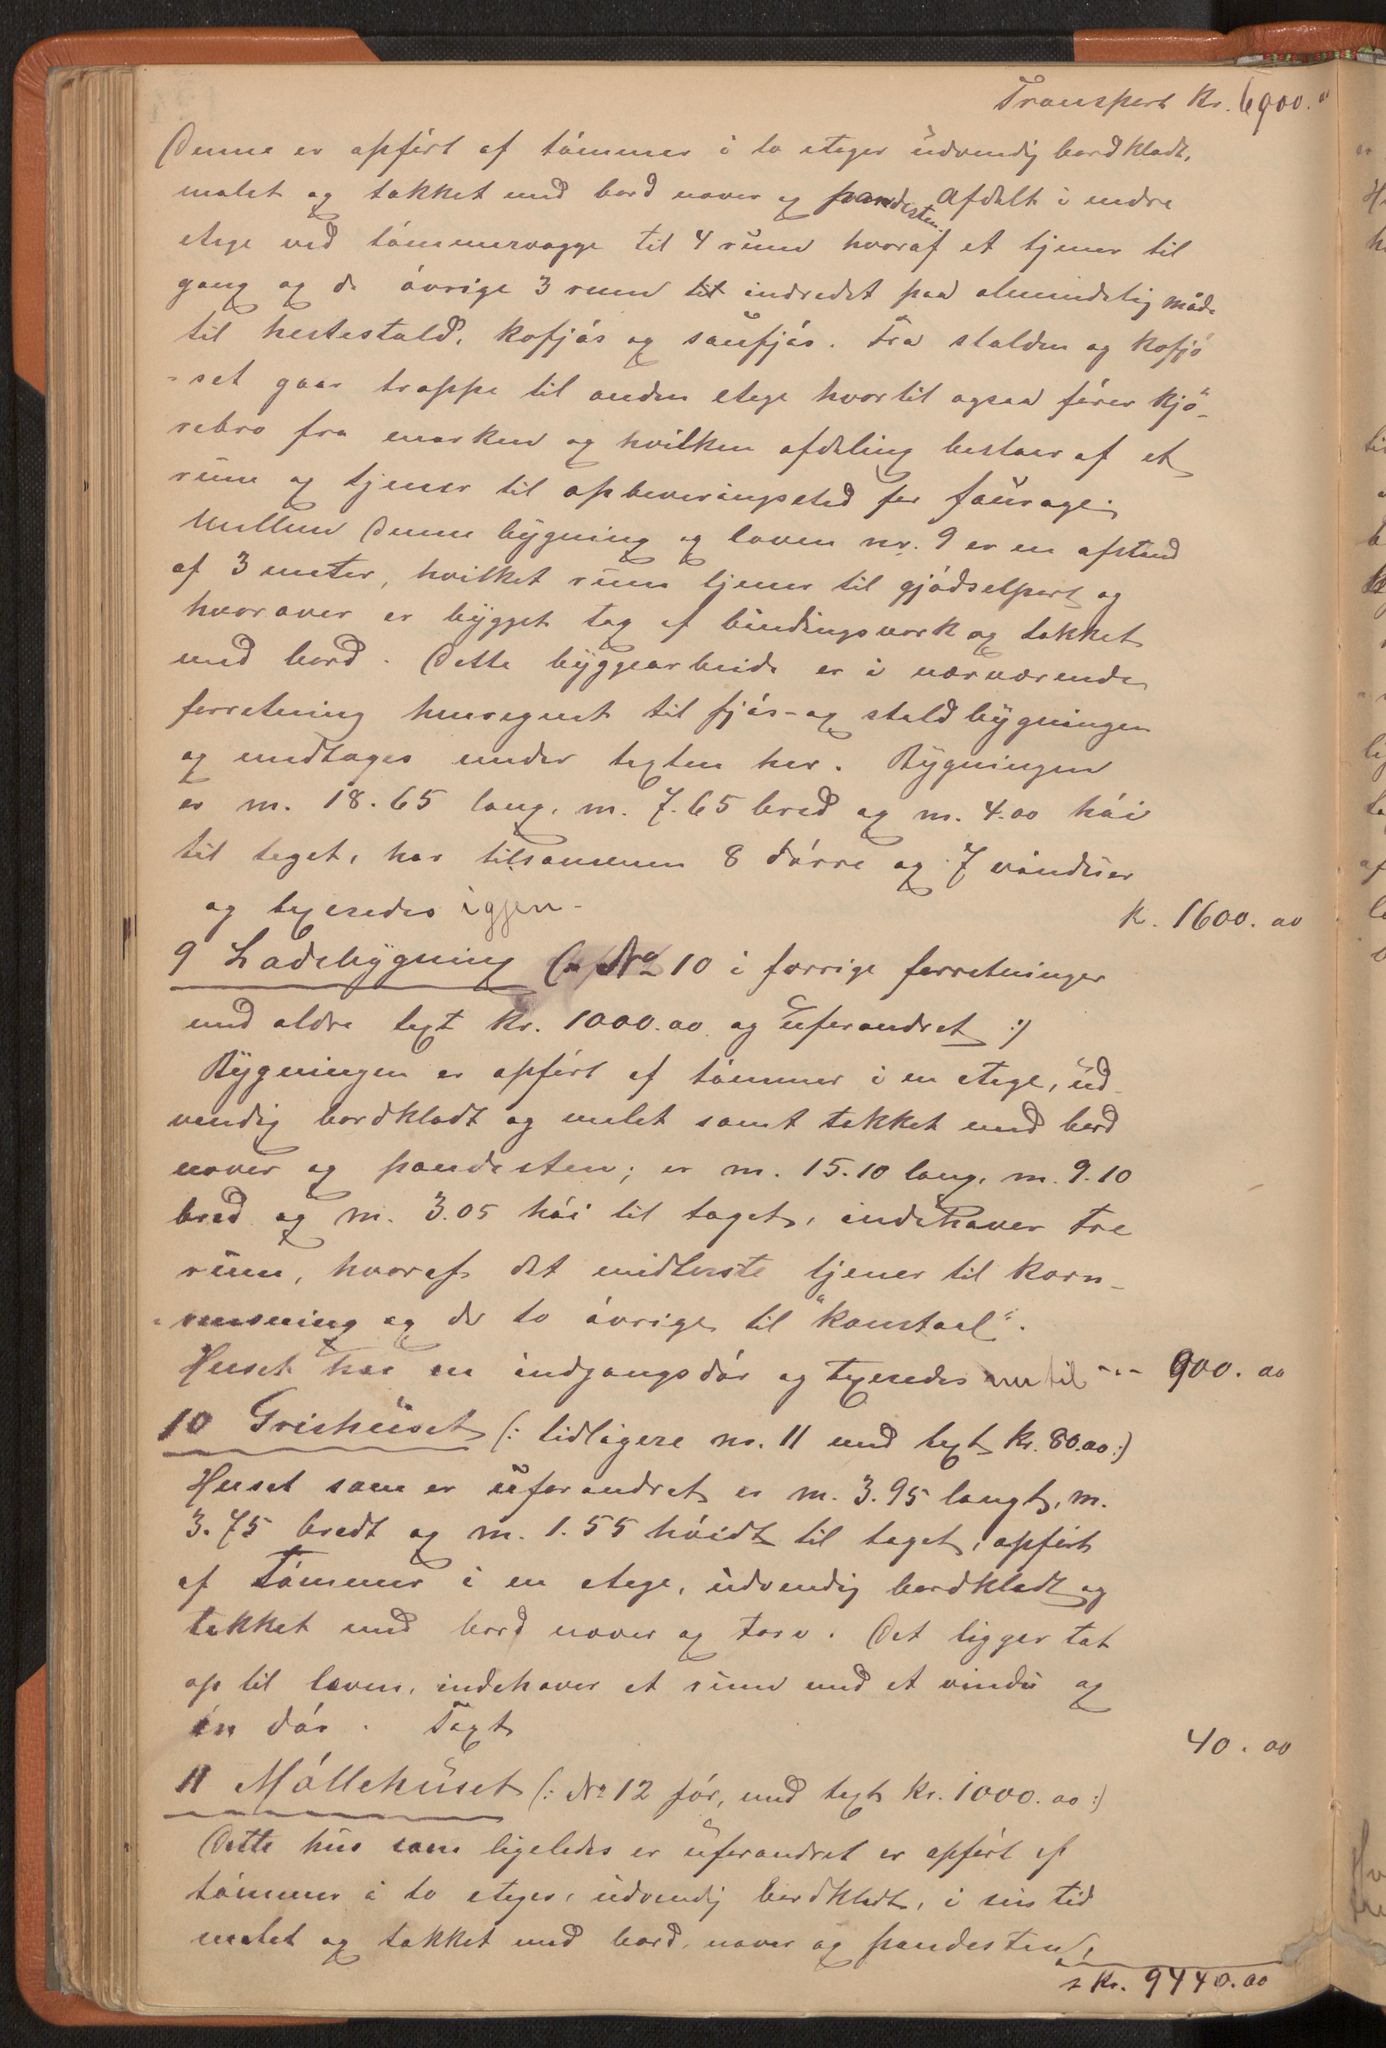 Transport Kr. 6900.00
Denne er opført af tømmer i to etager udvendig bordklædt,
malet og tækket med bord næver og pandesten. Afdelt i nedre
etage ved tømmervægge til 4 rum hvoraf et tjener til
gang og de øvrige 3 rum til indredet paa almindelig måde
til hestestald, kofjøs og saufjøs. Fra stalden og kofjø
-set gaar trappe til anden etage hvortil ogsaa fører kjø-
rebro fra marken og hvilken afdeling bestaar af et
rum og tjener til opbevaringssted for fourage.
Mellem denne bygning og laaven nr. 9 er en afstand
af 3 meter, hvilket rum tjener til gjødselport og
hvorover er bygget tag af bindingsverk og tækket
med bord. Dette byggearbeide er i nærværende
forretning henregnet til fjøs- og staldbygningen
og medtages under taxten her. Bygningen
er m. 18.65 lang, m. 7.65 bred og m. 4.00 høi
til taget, har tilsammen 8 dørre og 7 vinduer
og taxeredes igjen - Kr. 1600.00
9 Ladebygning (: No 10 i forrige forretninger
med ældre taxt Kr. 1000.00 og uforandret :)
Bygningen er opført af tømmer i en etage, ud-
vendig bordklædt og malet samt tækket med bord
næver og pandesten; er m. 15.10 lang, m. 9.10
bred og m. 3.05 høi til taget, indehaver tre
rum, hvoraf det midterste tjener til korn-
-rensning og de to øvrige til "kornstaal".
Huset har en indgangsdør og taxeredes nu til --- 900.00
10 Grishuset (: tidligere nr. 11 med taxt Kr. 80.00 :)
Huset som er uforandret er m. 3.95 langt, m.
3.75 bredt og m. 1.55 høidt til taget, opført
af Tømmer i en etage, udvendig bordklædt og
tækket med bord næver og torv. Det ligger tæt
op til laaven, indehaver et rum med et vindu og
én dør. Taxt 40.00
11 Møllehuset (: No 12 før, med taxt Kr. 1000.00 :)
Dette hus som ligeledes er uforandret er opført af
tømmer i to etager, udvendig bordklædt, i sin tid
malet og tækket med bord, næver og pandesten,
Kr. 9440.00